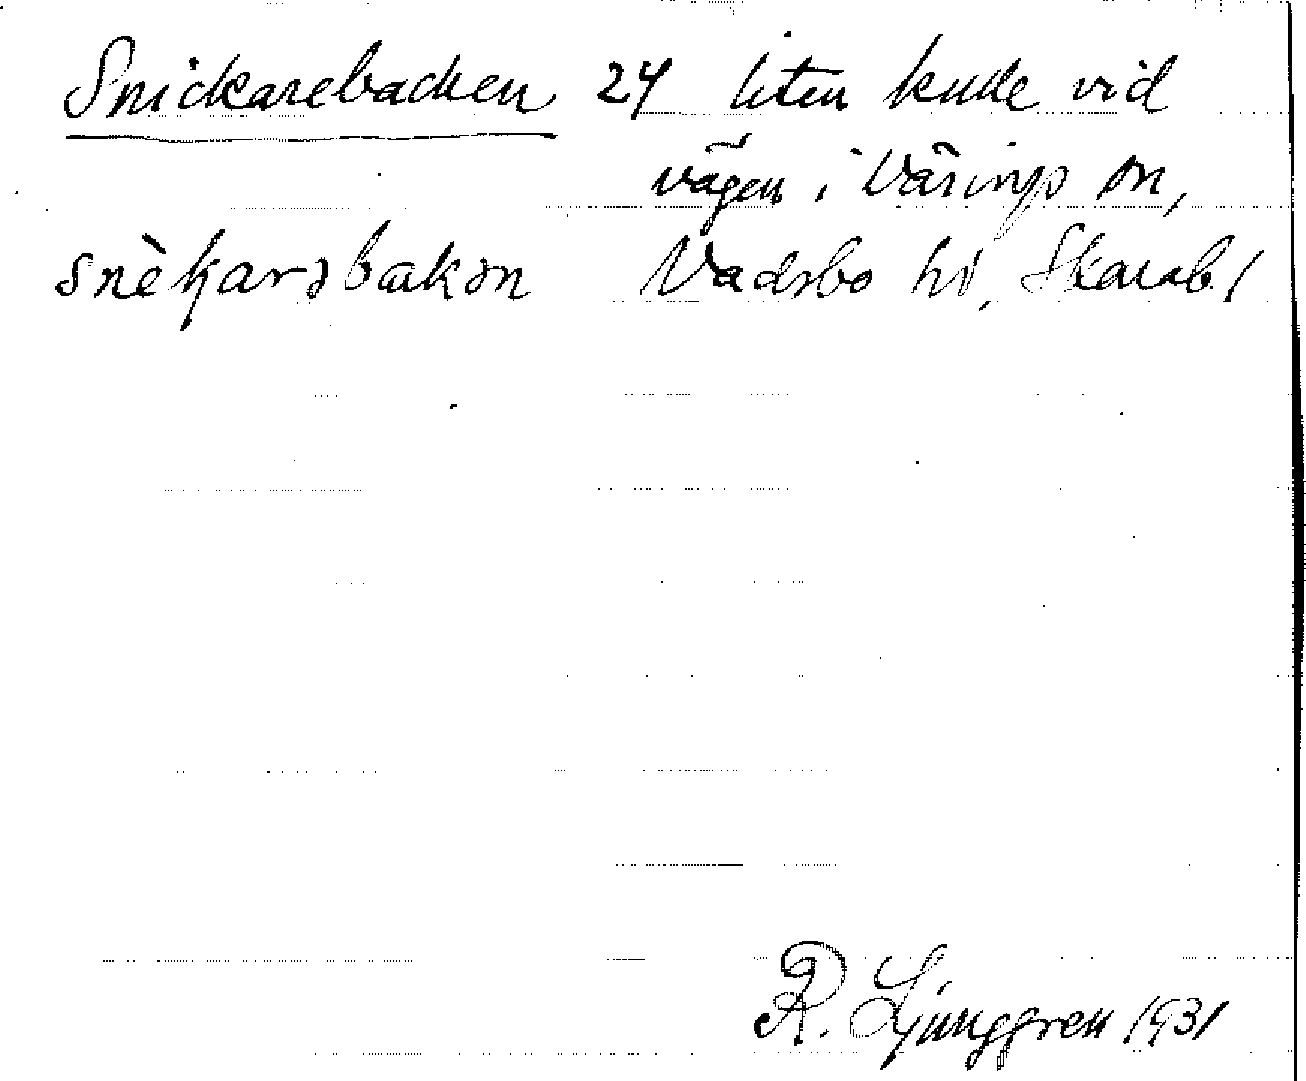 Snickarebacken 24 liten kulle vid
vägen i Värings sn,
snὲkarəbakən Vadsbo hd, Skarab. l
R. Ljunggren 1931